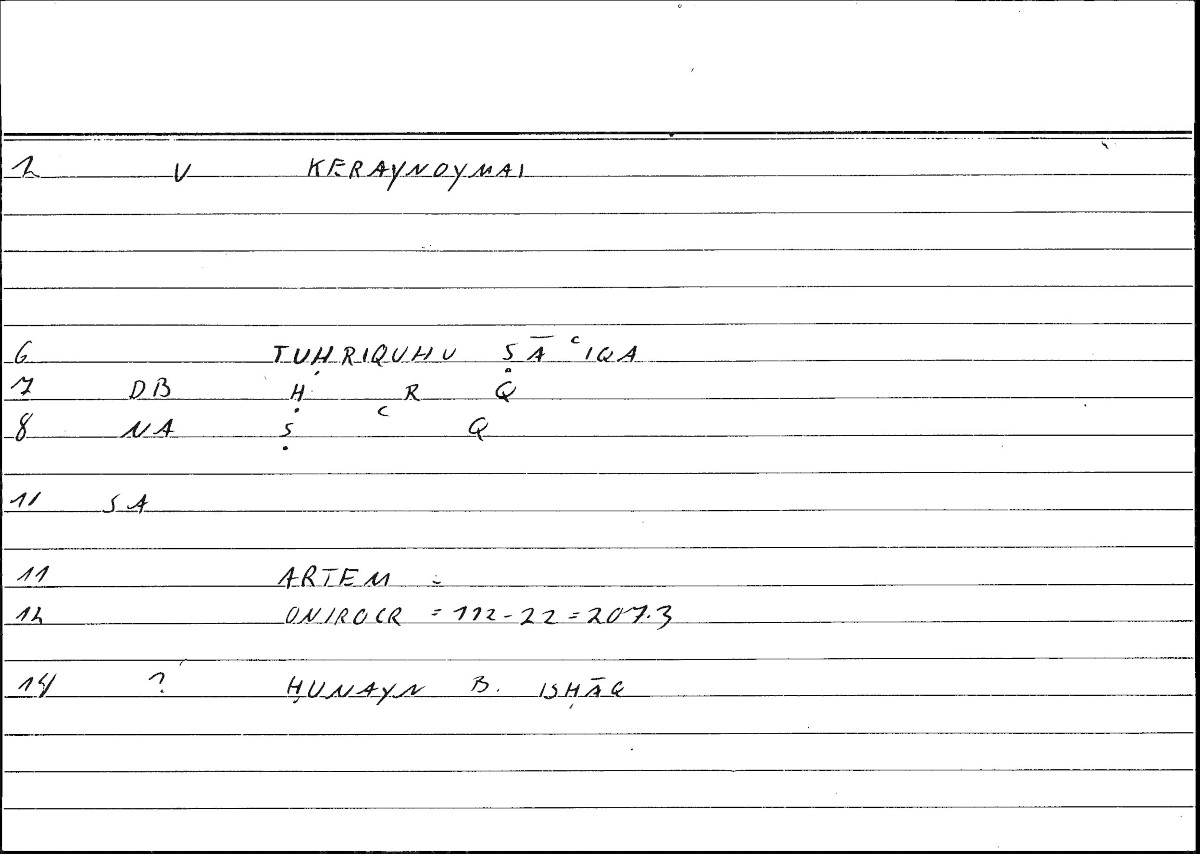 2 V KERAYNOYMAI
6 TUḤRIQUHU ṢĀʿIQA
7 DB Ḥ R Q
8 NA Ṣ ʿ Q
11 SA
11 ARTEM =
12 ONIROCR = 112-22 = 207.3
14 ? ḤUNAYN B. ISḤĀQ